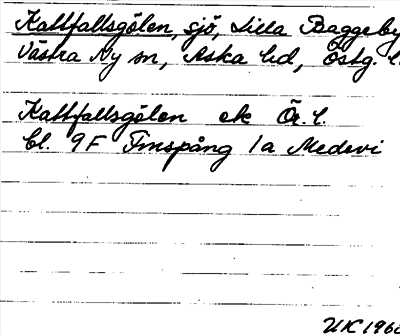 Kattfallsgölen, sjö, Lilla Baggeby
Västra Ny sn, Aska hd, Östg. l.
Kattfallsgölen ek Ör. l.
bl. 9F Finspång 1a Medevi
UK 1960